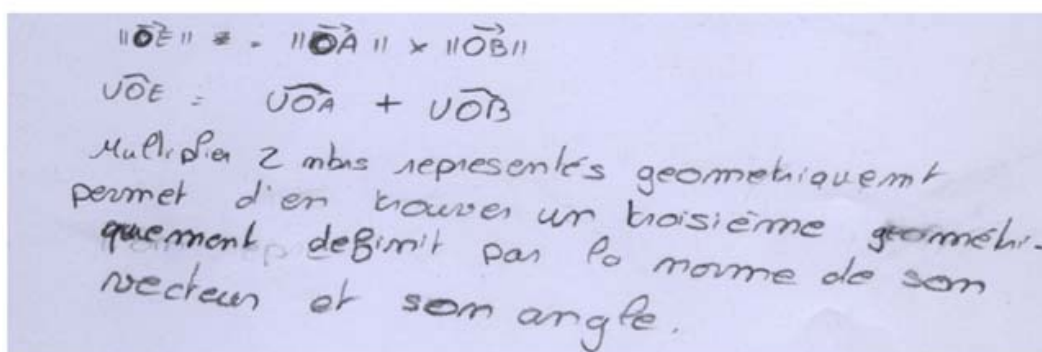 ||OE|| = ||OA|| × ||OB||
UOE = UOA + UOB
Multiplier 2 mbrs representés geometriquemt
permet d'en trouver un troisième géométri-
quement definit par la norme de son
vecteur et son angle.